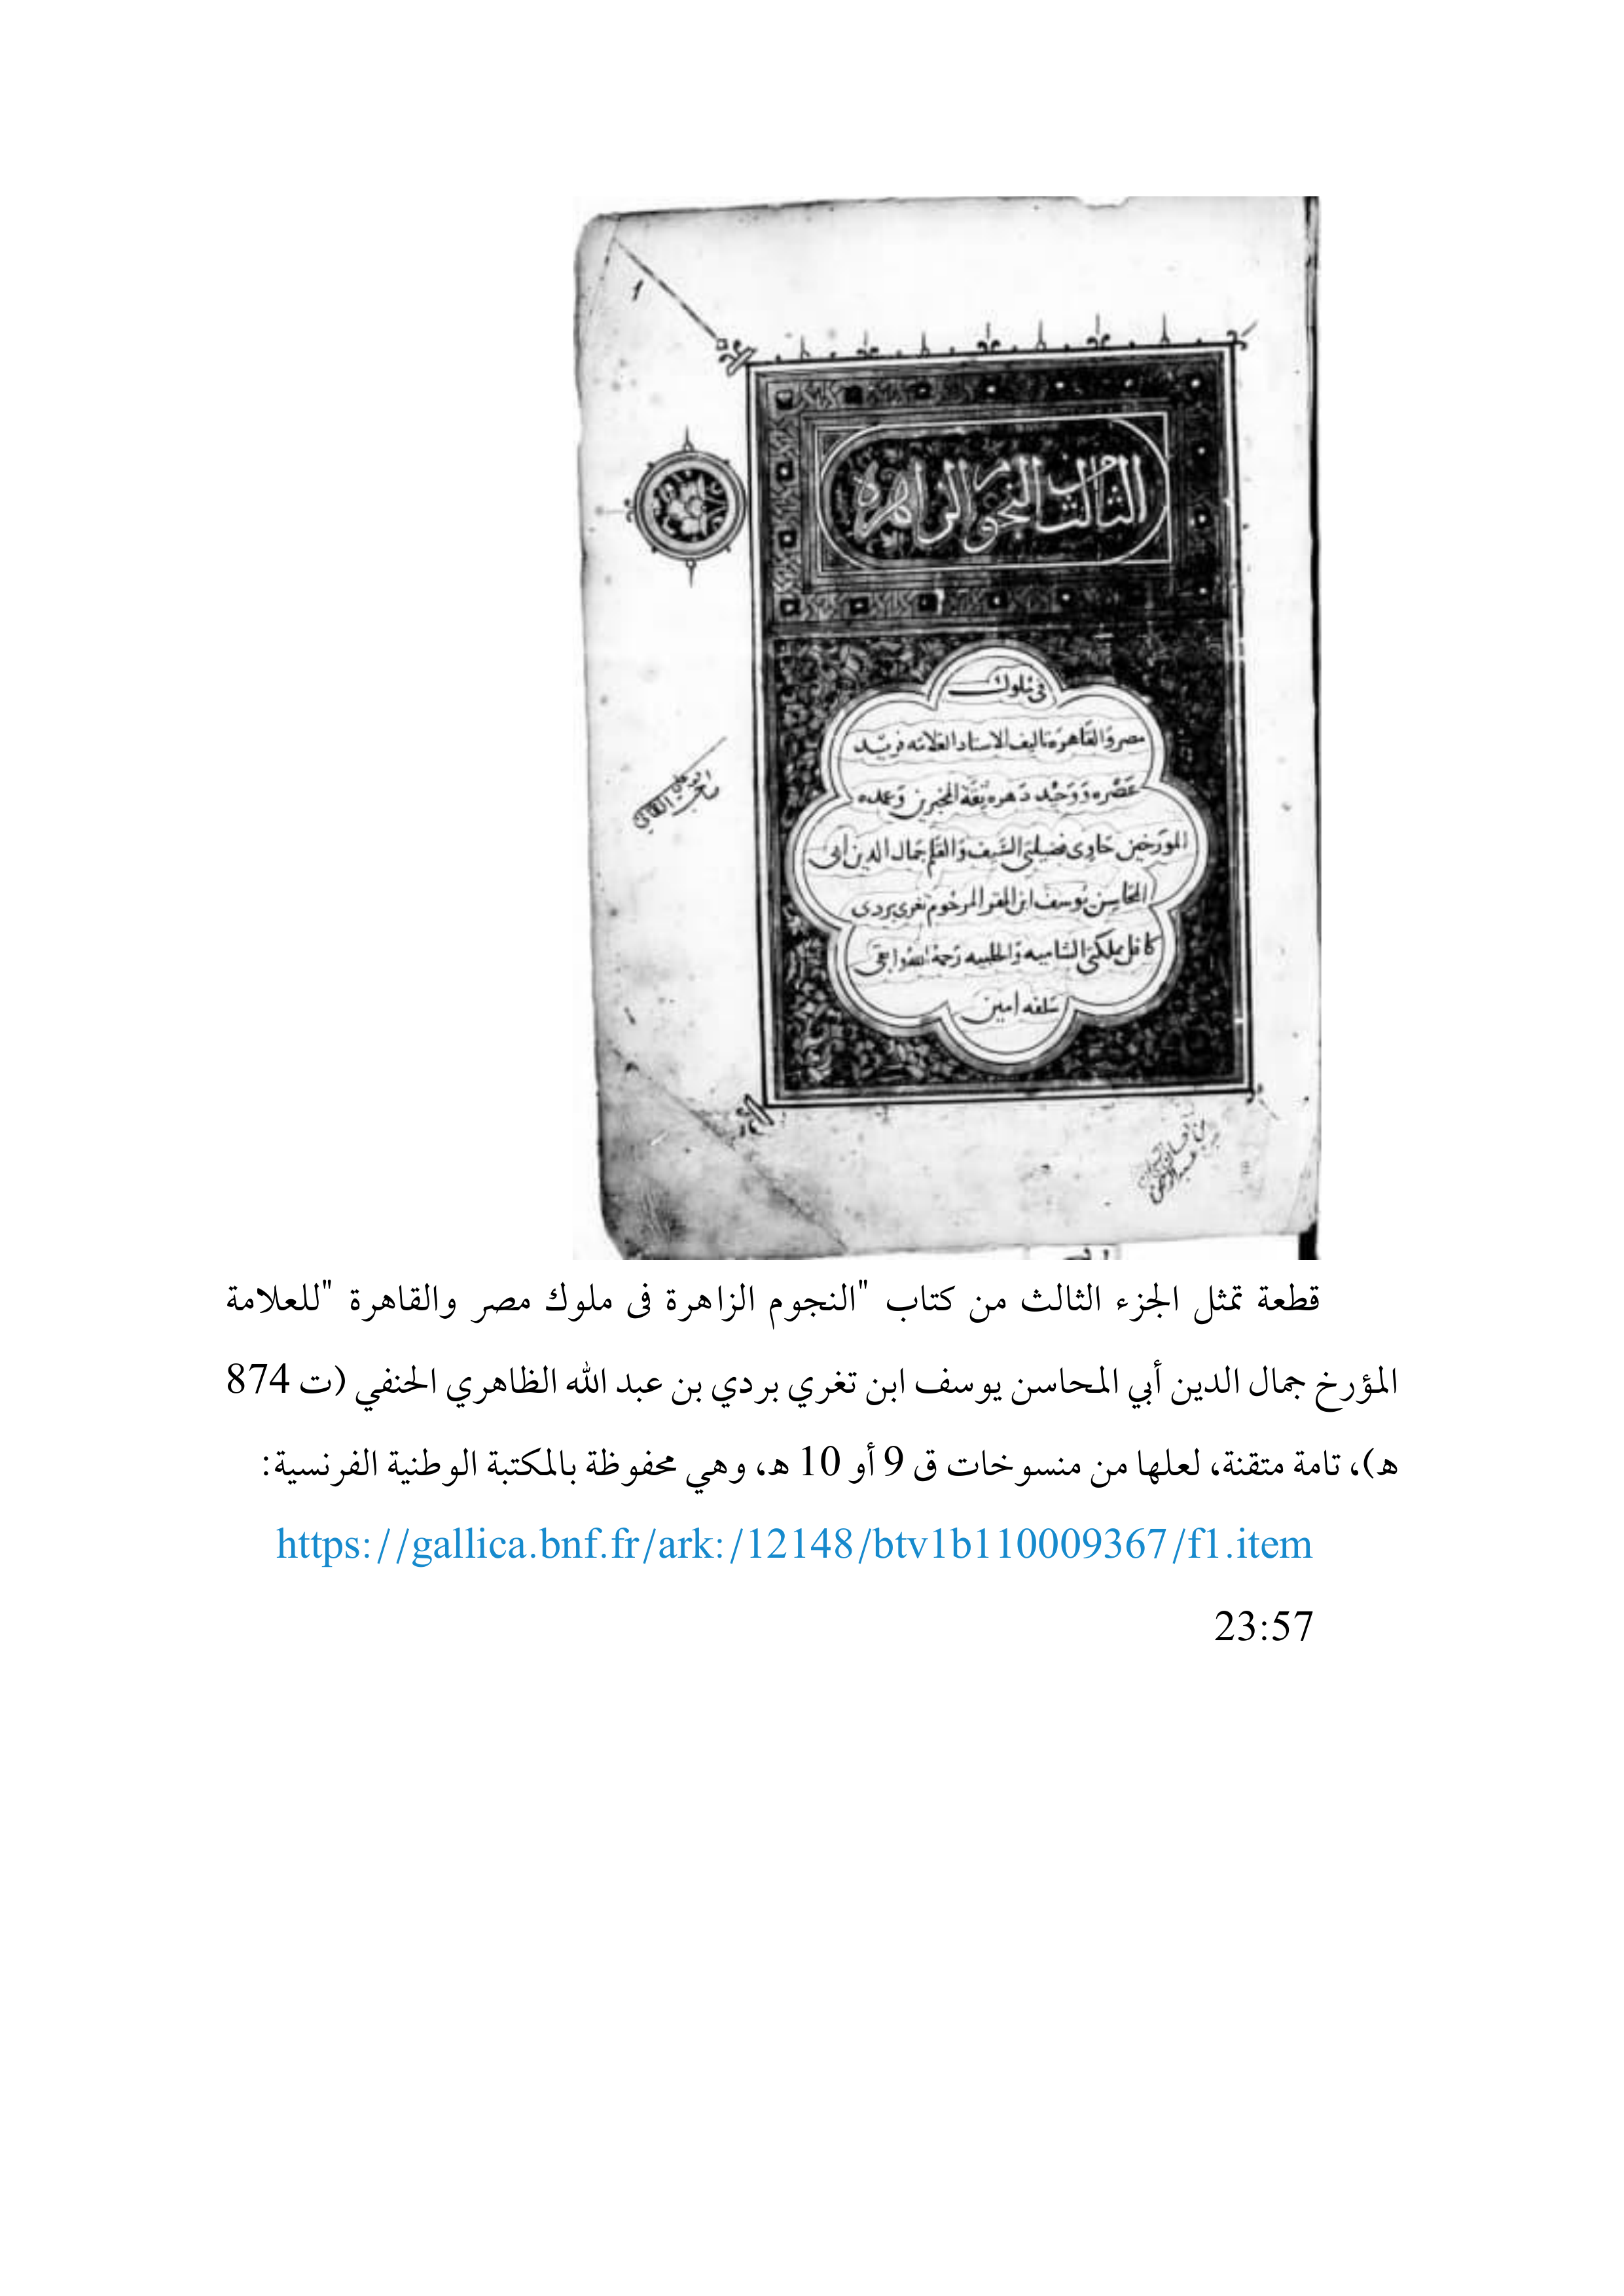 1
الثالث من النجوم الزاهره
فى ملوك
مصر والقاهرة تاليف الاستاد العلامه فريد
عصره ووحيد دهره ثقة المخبرين وعمده
المورخين حاوى فضيلتى السيف والقلم جمال الدين ابى
المحاسن يوسف ابن المقر المرحوم تغرى بردى
كافل مملكتى الشاميه والحلبيه رحمه الله وابقى
سلفه امين
قطعة تمثل الجزء الثالث من كتاب "النجوم الزاهرة فى ملوك مصر والقاهرة "للعلامة
المؤرخ جمال الدين أبي المحاسن يوسف ابن تغري بردي بن عبد الله الظاهري الحنفي (ت 874
ه)، تامة متقنة، لعلها من منسوخات ق 9 أو 10 ه، وهي محفوظة بالمكتبة الوطنية الفرنسية:
https://gallica.bnf.fr/ark:/12148/btv1b110009367/f1.item
23:57